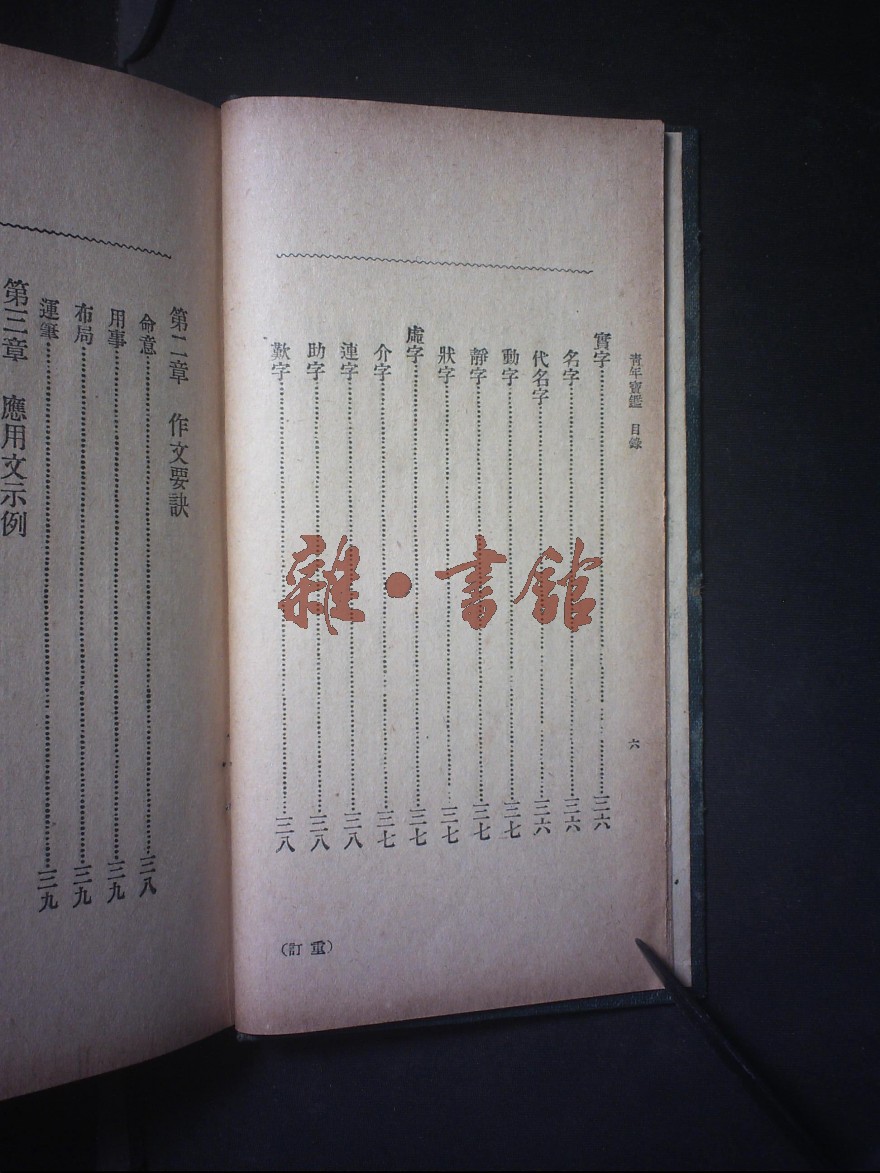 青年寶鑑 目錄
六
實字 三六
名字 三六
代名字 三六
動字 三七
靜字 三七
狀字 三七
虛字 三七
介字 三七
連字 三八
助字 三八
歎字 三八
(訂重)
第二章 作文要訣
命意 三八
用事 三九
布局 三九
運筆 三九
第三章 應用文示例
雜·書館